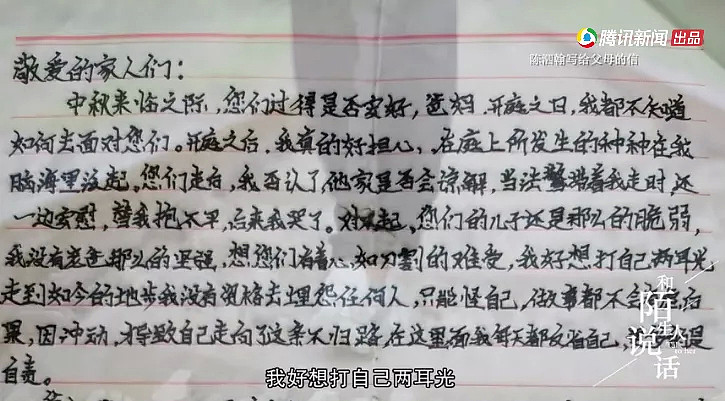 腾讯新闻 出品
陈泗翰写给父母的信
敬爱的家人们:
中秋来临之际,您们过得是否安好,爸妈.开庭之日,我都不知道
如何去面对您们。开庭之后.我真的好担心、在庭上所发生的种种在我
脑海里泛起。您们走后,我否认了他家是否会谅解,当法警带着我走时,还
一边安慰,替我抱不平,后来我哭了。对不起、您们的儿子还是那么的脆弱,
我没有老爸那么的坚强,想您们有着心如刀割的难受,我好想打自己两耳光
走到如今的地步我没有资格去埋怨任何人,只能怪自己,做事都不
果,因冲动,才导致自己走向了这条不归路.在这里面我每天都反省自己,
自责。
和陌生人说话
Talk to her
我好想打自己两耳光